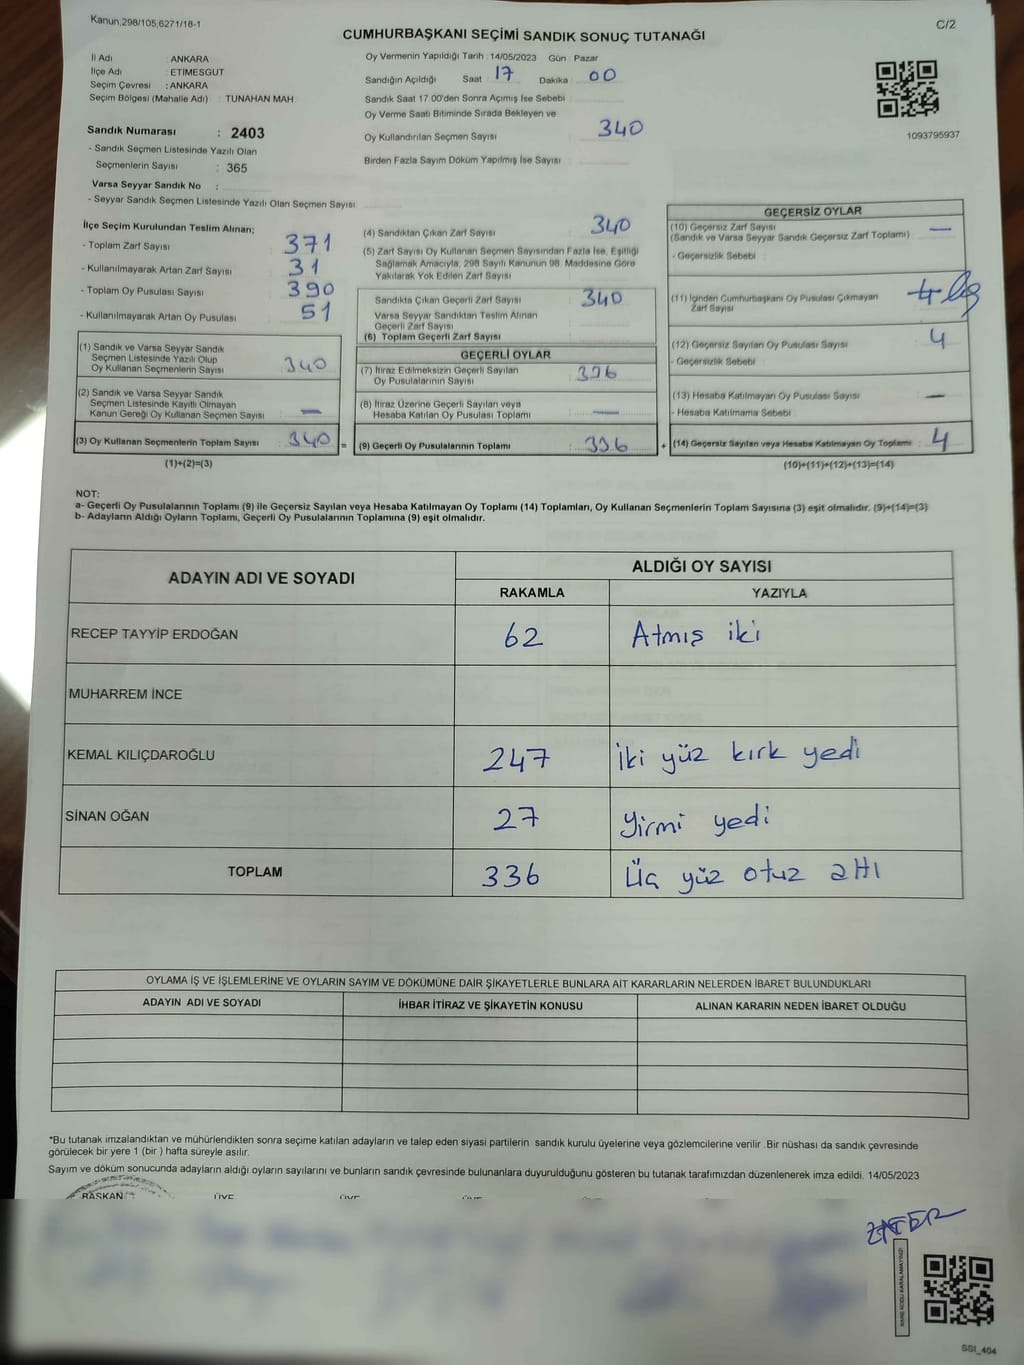 Kanun,298/105,6271/18-1
C/2
CUMHURBAŞKANI SEÇİMİ SANDIK SONUÇ TUTANAĞI
İl Adı : ANKARA
İlçe Adı : ETİMESGUT
Seçim Çevresi : ANKARA
Seçim Bölgesi (Mahalle Adı) : TUNAHAN MAH
Sandık Numarası : 2403
- Sandık Seçmen Listesinde Yazılı Olan
Seçmenlerin Sayısı : 365
Varsa Seyyar Sandık No :
- Seyyar Sandık Seçmen Listesinde Yazılı Olan Seçmen Sayısı
Oy Vermenin Yapıldığı Tarih : 14/05/2023 Gün : Pazar
Sandığın Açıldığı Saat : 17 Dakika : 00
Sandık Saat 17:00'den Sonra Açımış İse Sebebi :
Oy Verme Saati Bitiminde Sırada Bekleyen ve
Oy Kullandırılan Seçmen Sayısı : 340
Birden Fazla Sayım Döküm Yapılmış İse Sayısı :
1093795937
İlçe Seçim Kurulundan Teslim Alınan;
- Toplam Zarf Sayısı : 371
- Kullanılmayarak Artan Zarf Sayısı : 31
- Toplam Oy Pusulası Sayısı : 390
- Kullanılmayarak Artan Oy Pusulası : 51
(1) Sandık ve Varsa Seyyar Sandık
Seçmen Listesinde Yazılı Olup
Oy Kullanan Seçmenlerin Sayısı : 340
(2) Sandık ve Varsa Seyyar Sandık
Seçmen Listesinde Kayıtlı Olmayan
Kanun Gereği Oy Kullanan Seçmen Sayısı : —
(3) Oy Kullanan Seçmenlerin Toplam Sayısı : 340 =
(1)+(2)=(3)
(4) Sandıktan Çıkan Zarf Sayısı : 340
(5) Zarf Sayısı Oy Kullanan Seçmen Sayısından Fazla İse, Eşitliği
Sağlamak Amacıyla, 298 Sayılı Kanunun 98. Maddesine Göre
Yakılarak Yok Edilen Zarf Sayısı :
Sandıkta Çıkan Geçerli Zarf Sayısı : 340
Varsa Seyyar Sandıktan Teslim Alınan
Geçerli Zarf Sayısı :
(6) Toplam Geçerli Zarf Sayısı :
GEÇERLİ OYLAR
(7) İtiraz Edilmeksizin Geçerli Sayılan
Oy Pusulalarının Sayısı : 336
(8) İtiraz Üzerine Geçerli Sayılan veya
Hesaba Katılan Oy Pusulası Toplamı : —
(9) Geçerli Oy Pusulalarının Toplamı : 336 +
GEÇERSİZ OYLAR
(10) Geçersiz Zarf Sayısı : —
(Sandık ve Varsa Seyyar Sandık Geçersiz Zarf Toplamı)
- Geçersizlik Sebebi :
(11) İçinden Cumhurbaşkanı Oy Pusulası Çıkmayan
Zarf Sayısı :
(12) Geçersiz Sayılan Oy Pusulası Sayısı : 4
- Geçersizlik Sebebi :
(13) Hesaba Katılmayan Oy Pusulası Sayısı : —
- Hesaba Katılmama Sebebi :
(14) Geçersiz Sayılan veya Hesaba Katılmayan Oy Toplamı : 4
(10)+(11)+(12)+(13)=(14)
NOT:
a- Geçerli Oy Pusulalarının Toplamı (9) ile Geçersiz Sayılan veya Hesaba Katılmayan Oy Toplamı (14) Toplamları, Oy Kullanan Seçmenlerin Toplam Sayısına (3) eşit olmalıdır. (9)+(14)=(3)
b- Adayların Aldığı Oyların Toplamı, Geçerli Oy Pusulalarının Toplamına (9) eşit olmalıdır.
ADAYIN ADI VE SOYADI
ALDIĞI OY SAYISI
RAKAMLA YAZIYLA
RECEP TAYYİP ERDOĞAN 62 Atmış iki
MUHARREM İNCE
KEMAL KILIÇDAROĞLU 247 iki yüz kırk yedi
SİNAN OĞAN 27 yirmi yedi
TOPLAM 336 Üç yüz otuz altı
OYLAMA İŞ VE İŞLEMLERİNE VE OYLARIN SAYIM VE DÖKÜMÜNE DAİR ŞİKAYETLERLE BUNLARA AİT KARARLARIN NELERDEN İBARET BULUNDUKLARI
ADAYIN ADI VE SOYADI İHBAR İTİRAZ VE ŞİKAYETİN KONUSU ALINAN KARARIN NEDEN İBARET OLDUĞU
*Bu tutanak imzalandıktan ve mühürlendikten sonra seçime katılan adayların ve talep eden siyasi partilerin sandık kurulu üyelerine veya gözlemcilerine verilir .Bir nüshası da sandık çevresinde
görülecek bir yere 1 (bir ) hafta süreyle asılır.
Sayım ve döküm sonucunda adayların aldığı oyların sayılarını ve bunların sandık çevresinde bulunanlara duyurulduğunu gösteren bu tutanak tarafımızdan düzenlenerek imza edildi. 14/05/2023
BAŞKAN ÜYE ÜYE ÜYE
ZAFER
KARE KODU KARALAMAYINIZ!
SSI_404